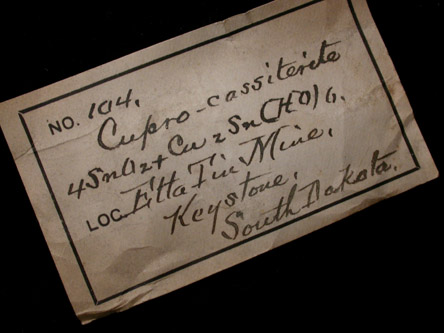 NO. 104.
Cupro-cassiterite
4SnO2+Cu2Sn(HO)6.
LOC. Etta Tin Mine,
Keystone,
South Dakota.